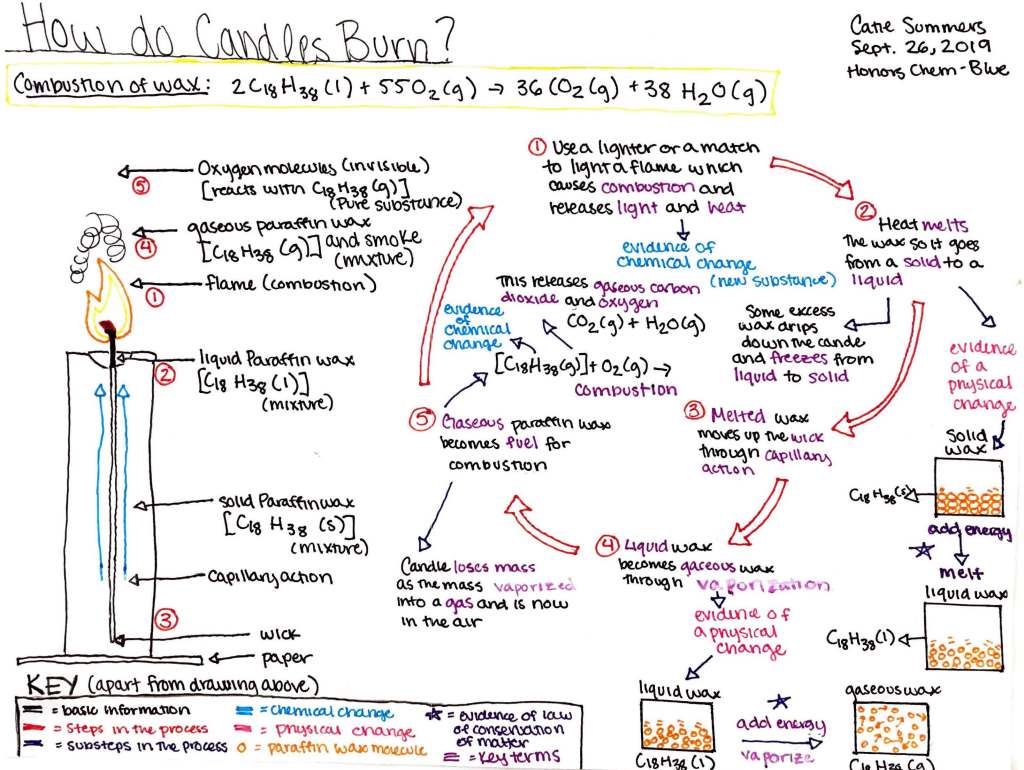 How do Candles Burn?
Catie Summers
Sept. 26, 2019
Honors Chem - Blue
Combustion of wax: 2C₁₈H₃₈(l) + 55O₂(g) → 36CO₂(g) + 38H₂O(g)
Oxygen molecules (invisible)
[reacts with C₁₈H₃₈(g)]
(Pure substance)
⑤
gaseous paraffin wax
[C₁₈H₃₈(g)] and smoke
(mixture)
④
flame (combustion)
①
liquid Paraffin wax
[C₁₈H₃₈(l)]
(mixture)
②
solid Paraffin wax
[C₁₈H₃₈(s)]
(mixture)
capillary action
③
wick
paper
① Use a lighter or a match
to light a flame which
causes combustion and
releases light and heat
evidence of
chemical change
(new substance)
② Heat melts
the wax so it goes
from a solid to a
liquid
Some excess
wax drips
down the candle
and freezes from
liquid to solid
evidence
of a
physical
change
solid
wax
C₁₈H₃₈(s)
add energy
melt
liquid wax
C₁₈H₃₈(l)
③ Melted wax
moves up the wick
through capillary
action
④ Liquid wax
becomes gaseous wax
through vaporization
evidence of
a physical
change
liquid wax
C₁₈H₃₈(l)
add energy
vaporize
gaseous wax
C₁₈H₃₈(g)
⑤ Gaseous paraffin wax
becomes fuel for
combustion
[C₁₈H₃₈(g)] + O₂(g) →
combustion
evidence
of
chemical
change
This releases gaseous carbon
dioxide and oxygen
CO₂(g) + H₂O(g)
Candle loses mass
as the mass vaporized
into a gas and is now
in the air
KEY (apart from drawing above)
= basic information
= Steps in the process
= substeps in the process
= chemical change
= physical change
= paraffin wax molecule
= evidence of law
of conservation
of matter
= Key terms